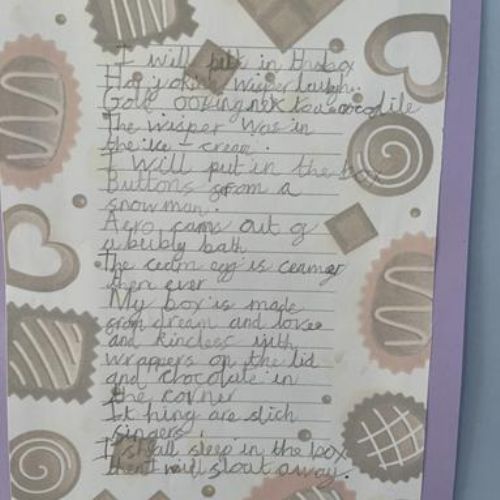 I will put in the box
Hot joking wisper laugh.
Gold oozing nek to a cocodile
The wisper was in
the ice - cream.
I will put in the box
Buttons from a
snowman.
Aero, cams out of
a bubly bath
The cream egg is creamer
then ever
My box is made
from dream and loves
and kindless with
wrappers on the lid
and chocolate in
the corner
It hing are stich
fingers.
I shall sleep in the box
then I will float away.